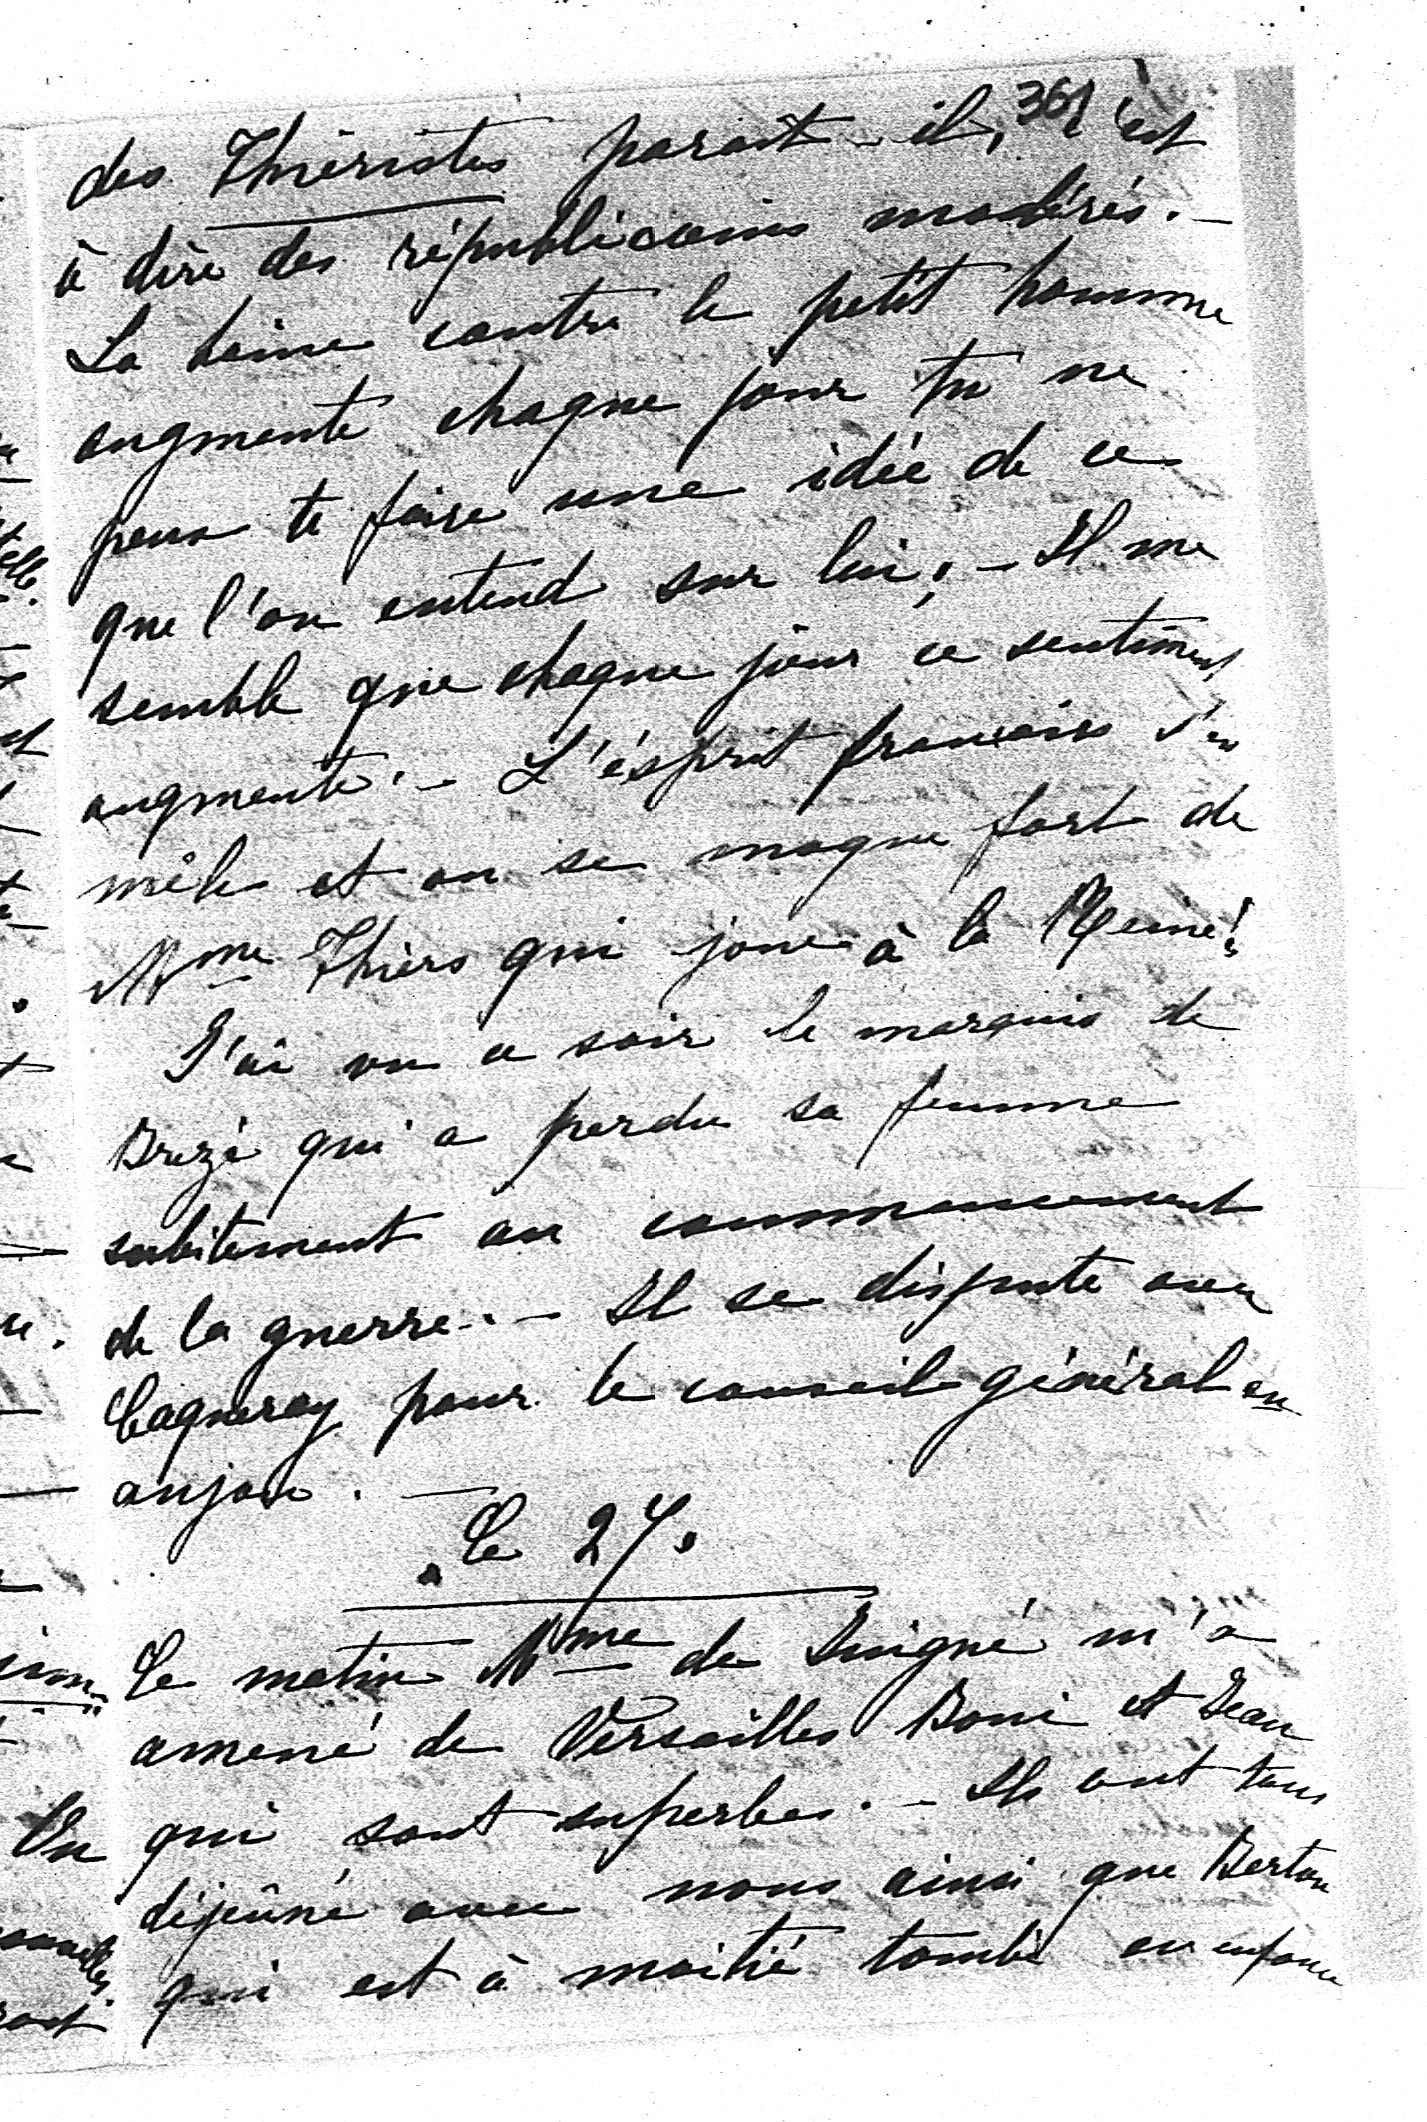 361
des Thiéristes parait-il, c'est
à dire des républicains modérés. -
La haine contre le petit homme
augmente chaque jour tu ne
peux te faire une idée de ce
que l'on entend sur lui. - Il me
semble que chaque jour ce sentiment
augmente. - L'ésprit francais s'en
mêle et on se moque fort de
Mme Thiers qui joue à la Reine!
J'ai vu ce soir le marquis de
Brezé qui a perdu sa femme
subitement au commencement
de la guerre. - Il se dispute avec
Caqueray pour le conseil général en
anjou. -
Le 27.
Ce matin Mme de Suigné m'a
amené de Versailles Boni et Jean
qui sont superbes. - Ils ont tous
déjeûné avec nous ainsi que Berton
qui est à moitié tombé en enfance